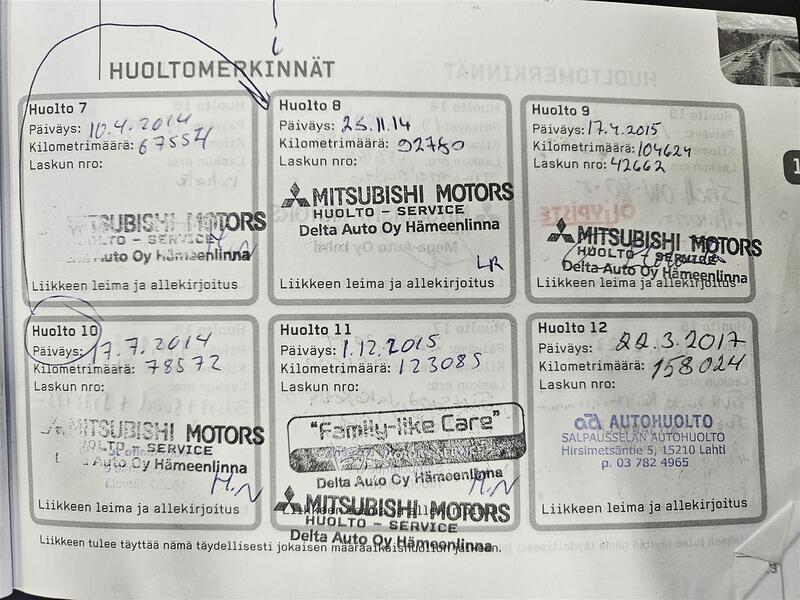 HUOLTOMERKINNÄT
Huolto 7
Päiväys: 10.4.2014
Kilometrimäärä: 67554
Laskun nro:
TSUBISHI MOTORS
HUOLTO - SERVICE
Auto Oy Hämeenlinna
H.N
Liikkeen leima ja allekirjoitus
Huolto 8
Päiväys: 25.11.14
Kilometrimäärä: 92780
Laskun nro:
MITSUBISHI MOTORS
HUOLTO - SERVICE
Delta Auto Oy Hämeenlinna
LR
Liikkeen leima ja allekirjoitus
Huolto 9
Päiväys: 17.4.2015
Kilometrimäärä: 104624
Laskun nro: 42662
MITSUBISHI MOTORS
HUOLTO - SERVICE
Delta Auto Oy Hämeenlinna
Liikkeen leima ja allekirjoitus
Huolto 10
Päiväys: 17.7.2014
Kilometrimäärä: 78572
Laskun nro:
MITSUBISHI MOTORS
HUOLTO - SERVICE
Auto Oy Hämeenlinna
H.N
Liikkeen leima ja allekirjoitus
Huolto 11
Päiväys: 1.12.2015
Kilometrimäärä: 123085
Laskun nro:
"Family-like Care"
Delta Auto Oy Hämeenlinna
H.N
MITSUBISHI MOTORS
HUOLTO - SERVICE
Delta Auto Oy Hämeenlinna
Huolto 12
Päiväys: 22.3.2017
Kilometrimäärä: 158024
Laskun nro:
ad AUTOHUOLTO
SALPAUSSELÄN AUTOHUOLTO
Hirsimetsäntie 5, 15210 Lahti
p. 03 782 4965
Liikkeen leima ja allekirjoitus
Liikkeen tulee täyttää nämä täydellisesti jokaisen määräaikaishuollon jälkeen.